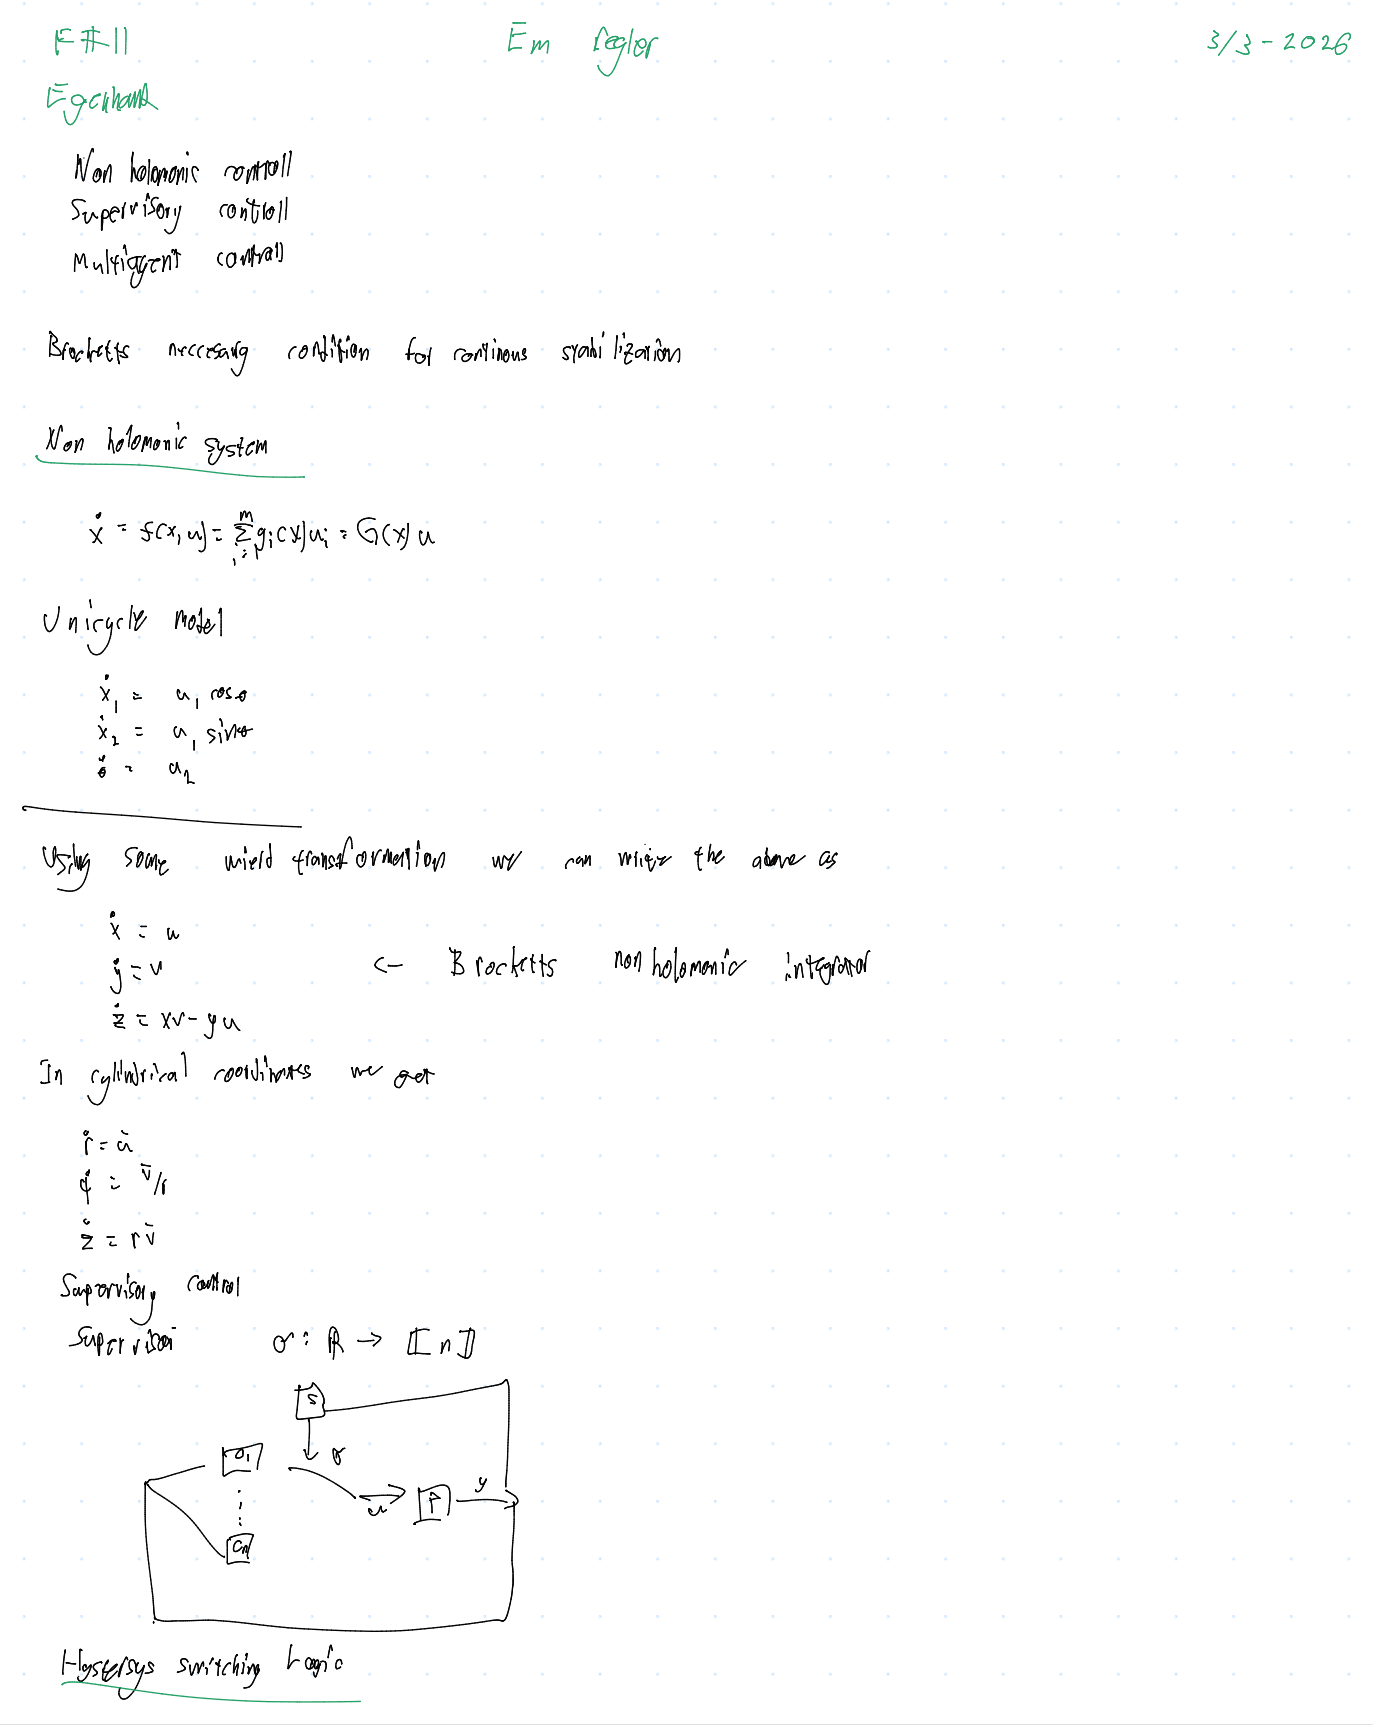 F#11 Em regler 3/3-2026
Egenhand
Non holomonic controll
Supervisory controll
Multiagent controll
Brocketts neccesarg condition for continous stabilization
Non holomonic system
ẋ = f(x,u) = Σ_{i=1}^{m} g_i(x)u_i = G(x)u
Unicycle model
ẋ₁ = u₁ cosθ
ẋ₂ = u₁ sinθ
θ̇ = u₂
Using some wierd transformation we can write the above as
ẋ = u
ẏ = v <- Brocketts nonholomonic integrator
ż = xv - yu
In cylindrical coordinates we get
ṙ = ū
φ̇ = v̄/r
ż = rv̄
Supervisory control
Supervisor σ: ℝ → ⟦n⟧
S
σ
C₁
u
P
y
Cₙ
Hystersys switching Logic